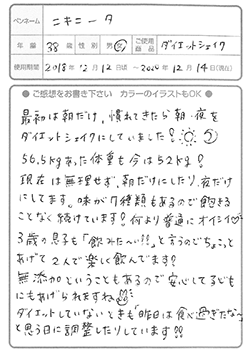 ペンネーム ニキニータ
年齢 38歳 性別 男・女 ご使用商品 ダイエットシェイク
使用期間 2018年12月12日頃〜2020年12月14日(現在)
●ご感想をお書き下さい カラーのイラストもOK●
最初は朝だけ、慣れてきたら朝・夜を
ダイエットシェイクにしていました!
56.5kgあった体重も今は52kg!
現在は無理せず、朝だけにしたり、夜だけ
にしてます。味が7種類もあるので飽きる
ことなく続けています!何より普通にオイシイ♡
3歳の息子も「飲みたーい!!」と言うのでちょこっと
あげて2人で楽しく飲んでます!
無添加ということもあるので安心して子ども
にもあげられますね
ダイエットしていないときも「昨日は食べ過ぎたな〜」
と思う日に調整したりしています!!